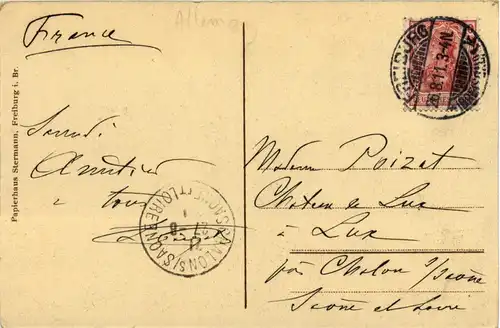 Allemag
France
Papierhaus Stermann, Freiburg i. Br.
FREIBURG
8.11.3-4N.
Samedi
Amitiés
à tous
CHALON S/SAONE
SAONE ET LOIRE
Madame Poizat
Chateau de Lux
à Lux
près Chalon s/Saône
Saône et Loire